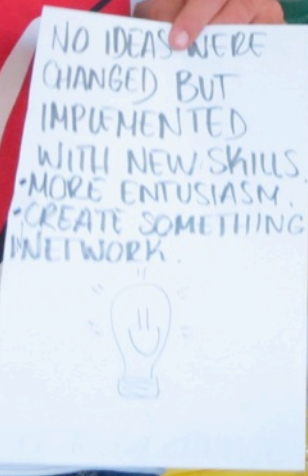 NO IDEAS WERE
CHANGED BUT
IMPLEMENTED
WITH NEW SKILLS.
•MORE ENTUSIASM.
•CREATE SOMETHING
NETWORK.